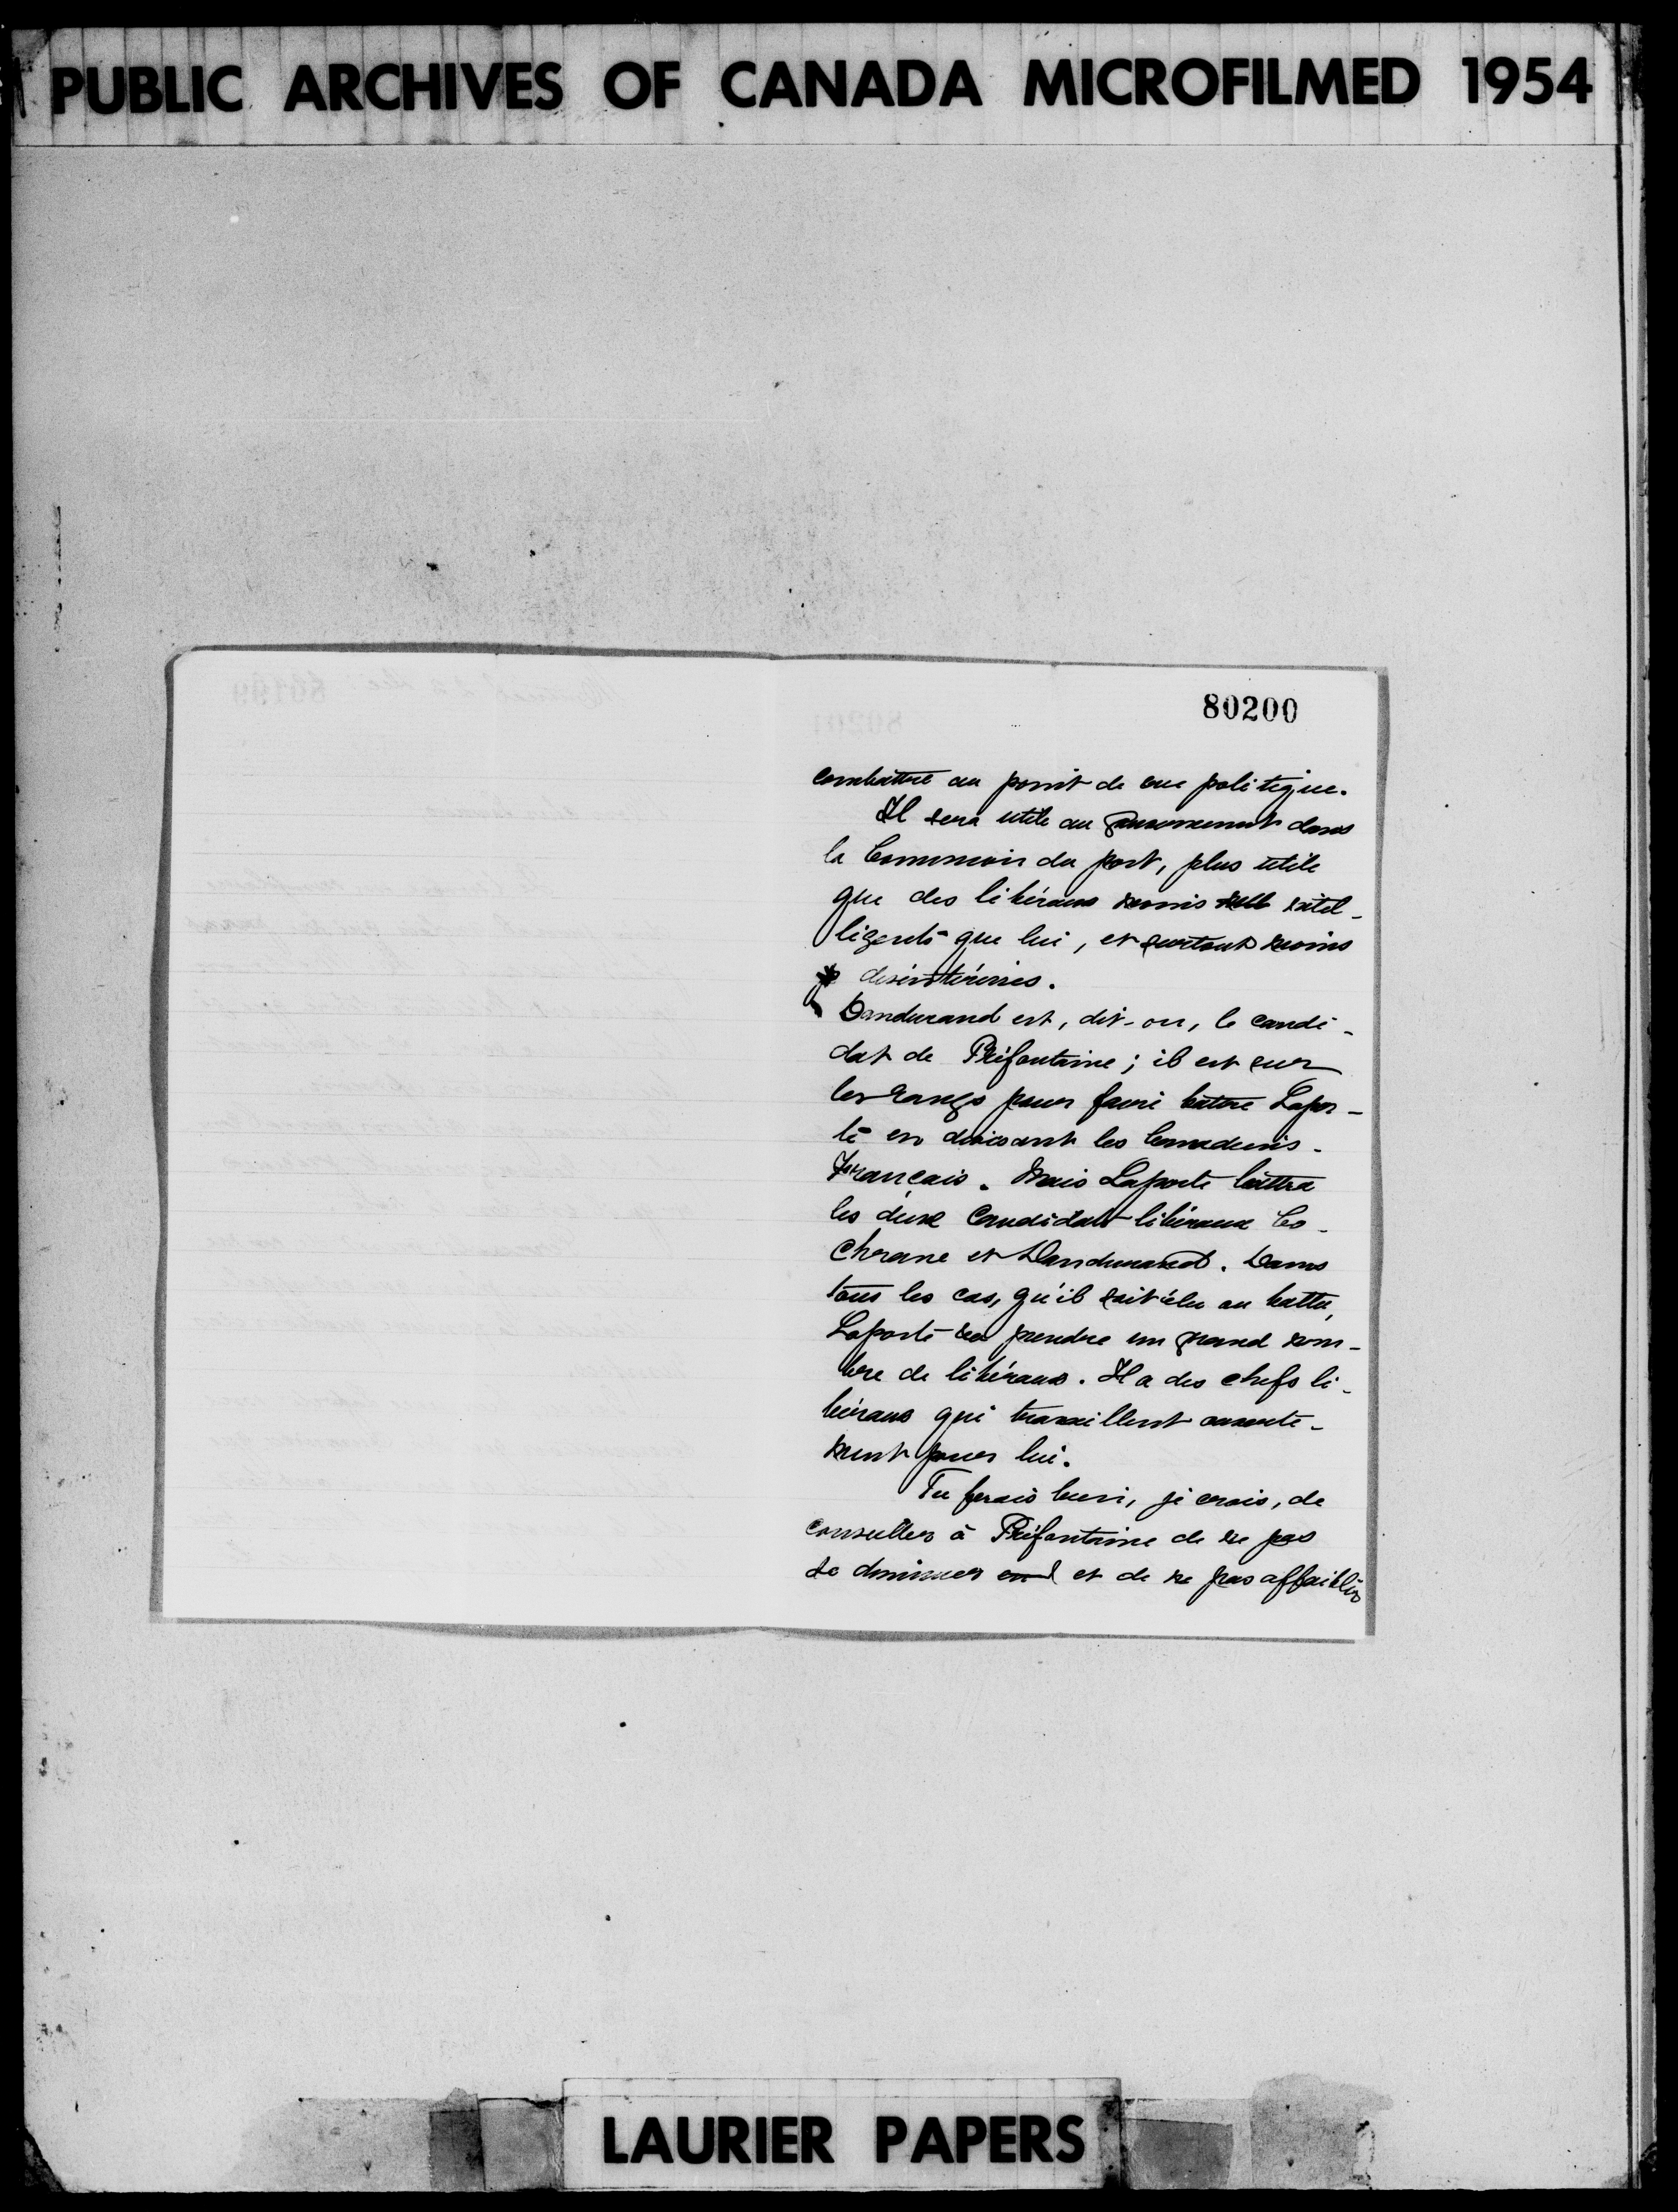 PUBLIC ARCHIVES OF CANADA MICROFILMED 1954
80200
combattre au point de vue politique.
Il sera utile au gouvernement dans
la Commission du port, plus utile
que des libéraux moins intel-
ligents que lui, et surtout moins
désintéressés.
Dandurand est, dit-on, le candi-
dat de Préfontaine; il est sur
les rangs pour faire battre Lapor-
te en divisant les Canadiens-
Français. Mais Laporte battra
les deux candidats libéraux Co-
chrane et Dandurand. Dans
tous les cas, qu'il soit élu ou battu,
Laporte va prendre un grand nom-
bre de libéraux. Il a des chefs li-
béraux qui travaillent ouverte-
ment pour lui.
Tu ferais bien, je crois, de
conseiller à Préfontaine de ne pas
se diminuer et de ne pas affaiblir
LAURIER PAPERS